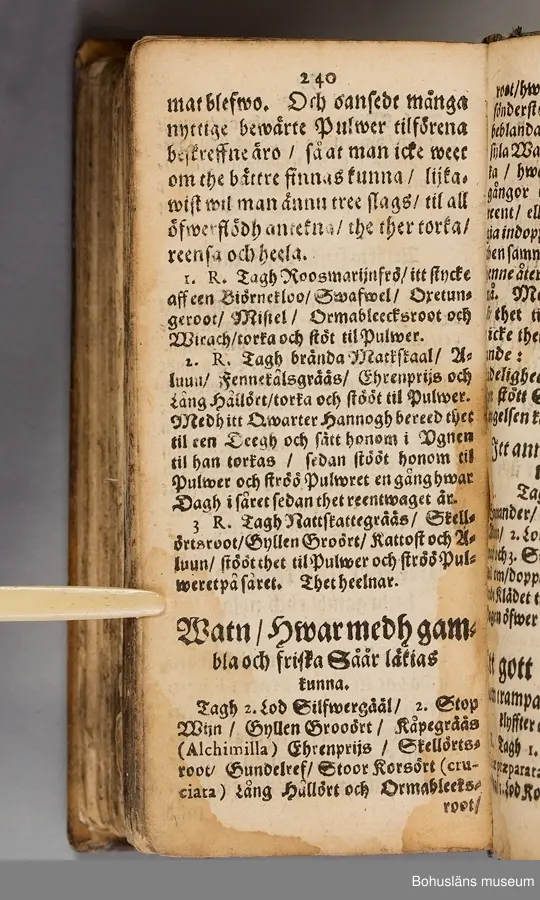 240
mat blefwo. Och oansedt många
nyttige bewärte Pulwer tilförena
beskreffne äro / så at man icke weet
om the bättre finnas kunna / lijka-
wist wil man ännu tree slags / til all
öfwerflödh antekna / the ther torka /
reensa och heela.
1. R. Tagh Roosmarijnfrö / itt stycke
aff een Biörnekloo / Swafwel / Oxetun-
geroot / Mistel / Ormableecksroot och
Wirach / torka och stöt til Pulwer.
2. R. Tagh brända Matkskaal / A-
luun / Fennekålsgrääs / Ehrenprijs och
Lång Hållört / torka och stööt til Pulwer.
Medh itt Qwarter Hannogh bereed thet
til een Deegh och sätt honom i Vgnen
til han torkas / sedan stööt honom til
Pulwer och ströö Pulwret en gång hwar
Dagh i såret sedan thet reentwaget är.
3 R. Tagh Nattskattegrääs / Skell-
örtsroot / Gyllen Groört / Kattost och A-
luun / stööt thet til Pulwer och ströö Pul-
weret på såret. Thet heelnar.
Watn / Hwar medh gam-
bla och friska Såår läkias
kunna.
Tagh 2. Lod Silfwergåål / 2. Stop
Wijn / Gyllen Grooört / Kåpegrääs
(Alchimilla) Ehrenprijs / Skellörts-
root / Gundelref / Stoor Korsört (cru-
ciata) Lång Hållört och Ormableecks-
root /
Itt ann
Tag
thet ti
icke the
nde:
tt gott
trampa
klyffter
Tagh 1.
præparata
Bohusläns museum